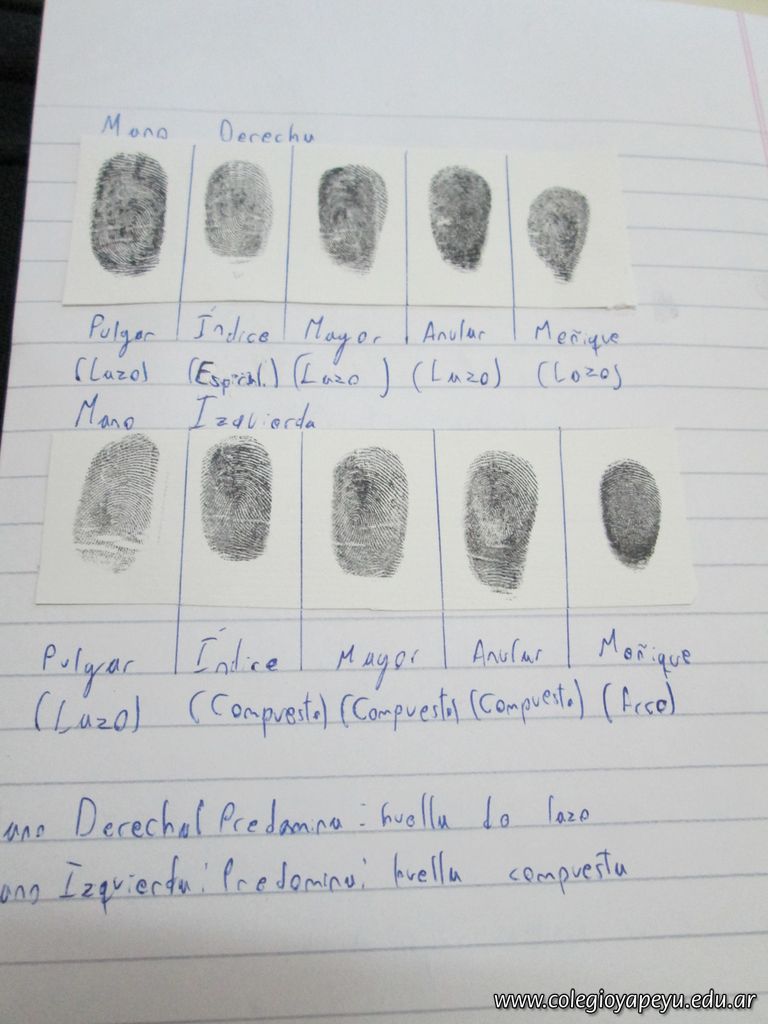 Mano Derecha
Pulgar Índice Mayor Anular Meñique
(Lazo) (Espiral.) (Lazo) (Lazo) (Lozo)
Mano Izquierda
Pulgar Índice Mayor Anular Meñique
(Lazo) (Compuesto) (Compuesto) (Compuesto) (Arco)
ano Derecha Predomina: huella de lazo
ano Izquierda: Predomina: huella compuesta
www.colegioyapeyu.edu.ar